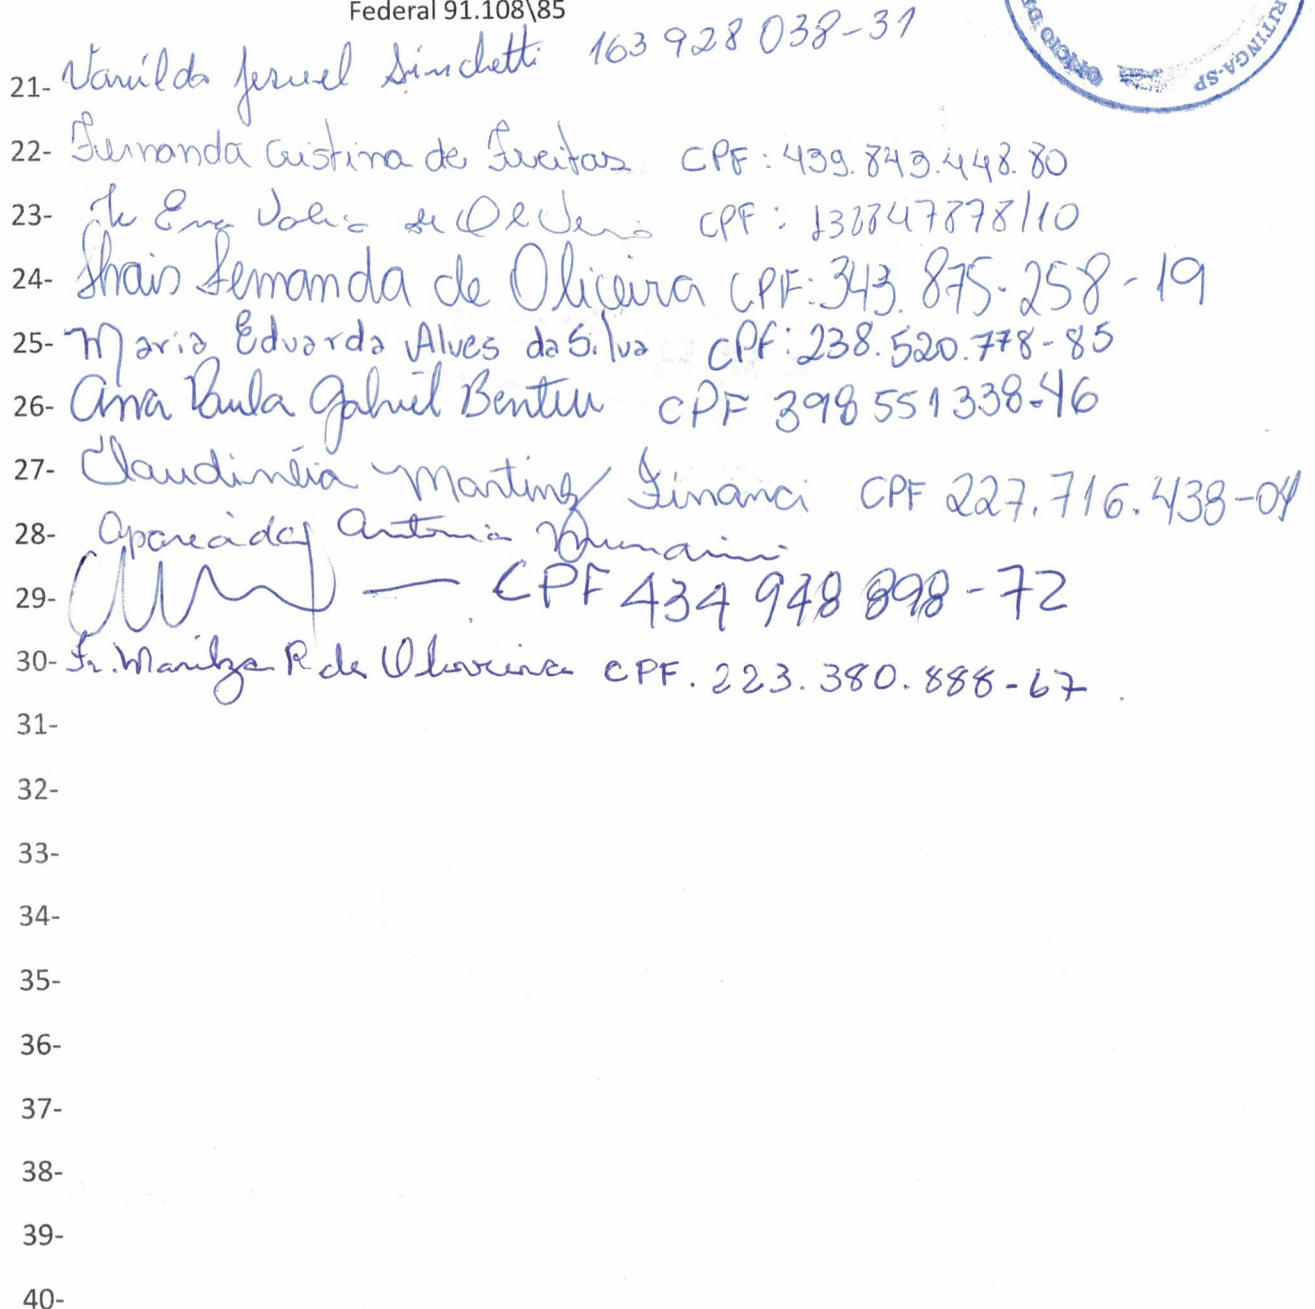 Federal 91.108\85
OFÍCIO DE
RITINGA-SP
21- Vanilda 163 928 038-31
22- Fernanda Cristina de Freitas CPF: 439.843.448.80
23- de Oliveira CPF: 138847878/10
24- Thais Fernanda de Oliveira CPF: 343.875-258-19
25- Maria Eduarda Alves da Silva CPF: 238.520.778-85
26- Ana Paula Gabriel CPF 398 551 338-46
27- Claudinéia Martinz CPF 227.716.438-04
28- Aparecida Antonia
29- — CPF 434 948 898-72
30- Ir. Marilza R de Oliveira CPF. 223.380.888-67
31-
32-
33-
34-
35-
36-
37-
38-
39-
40-